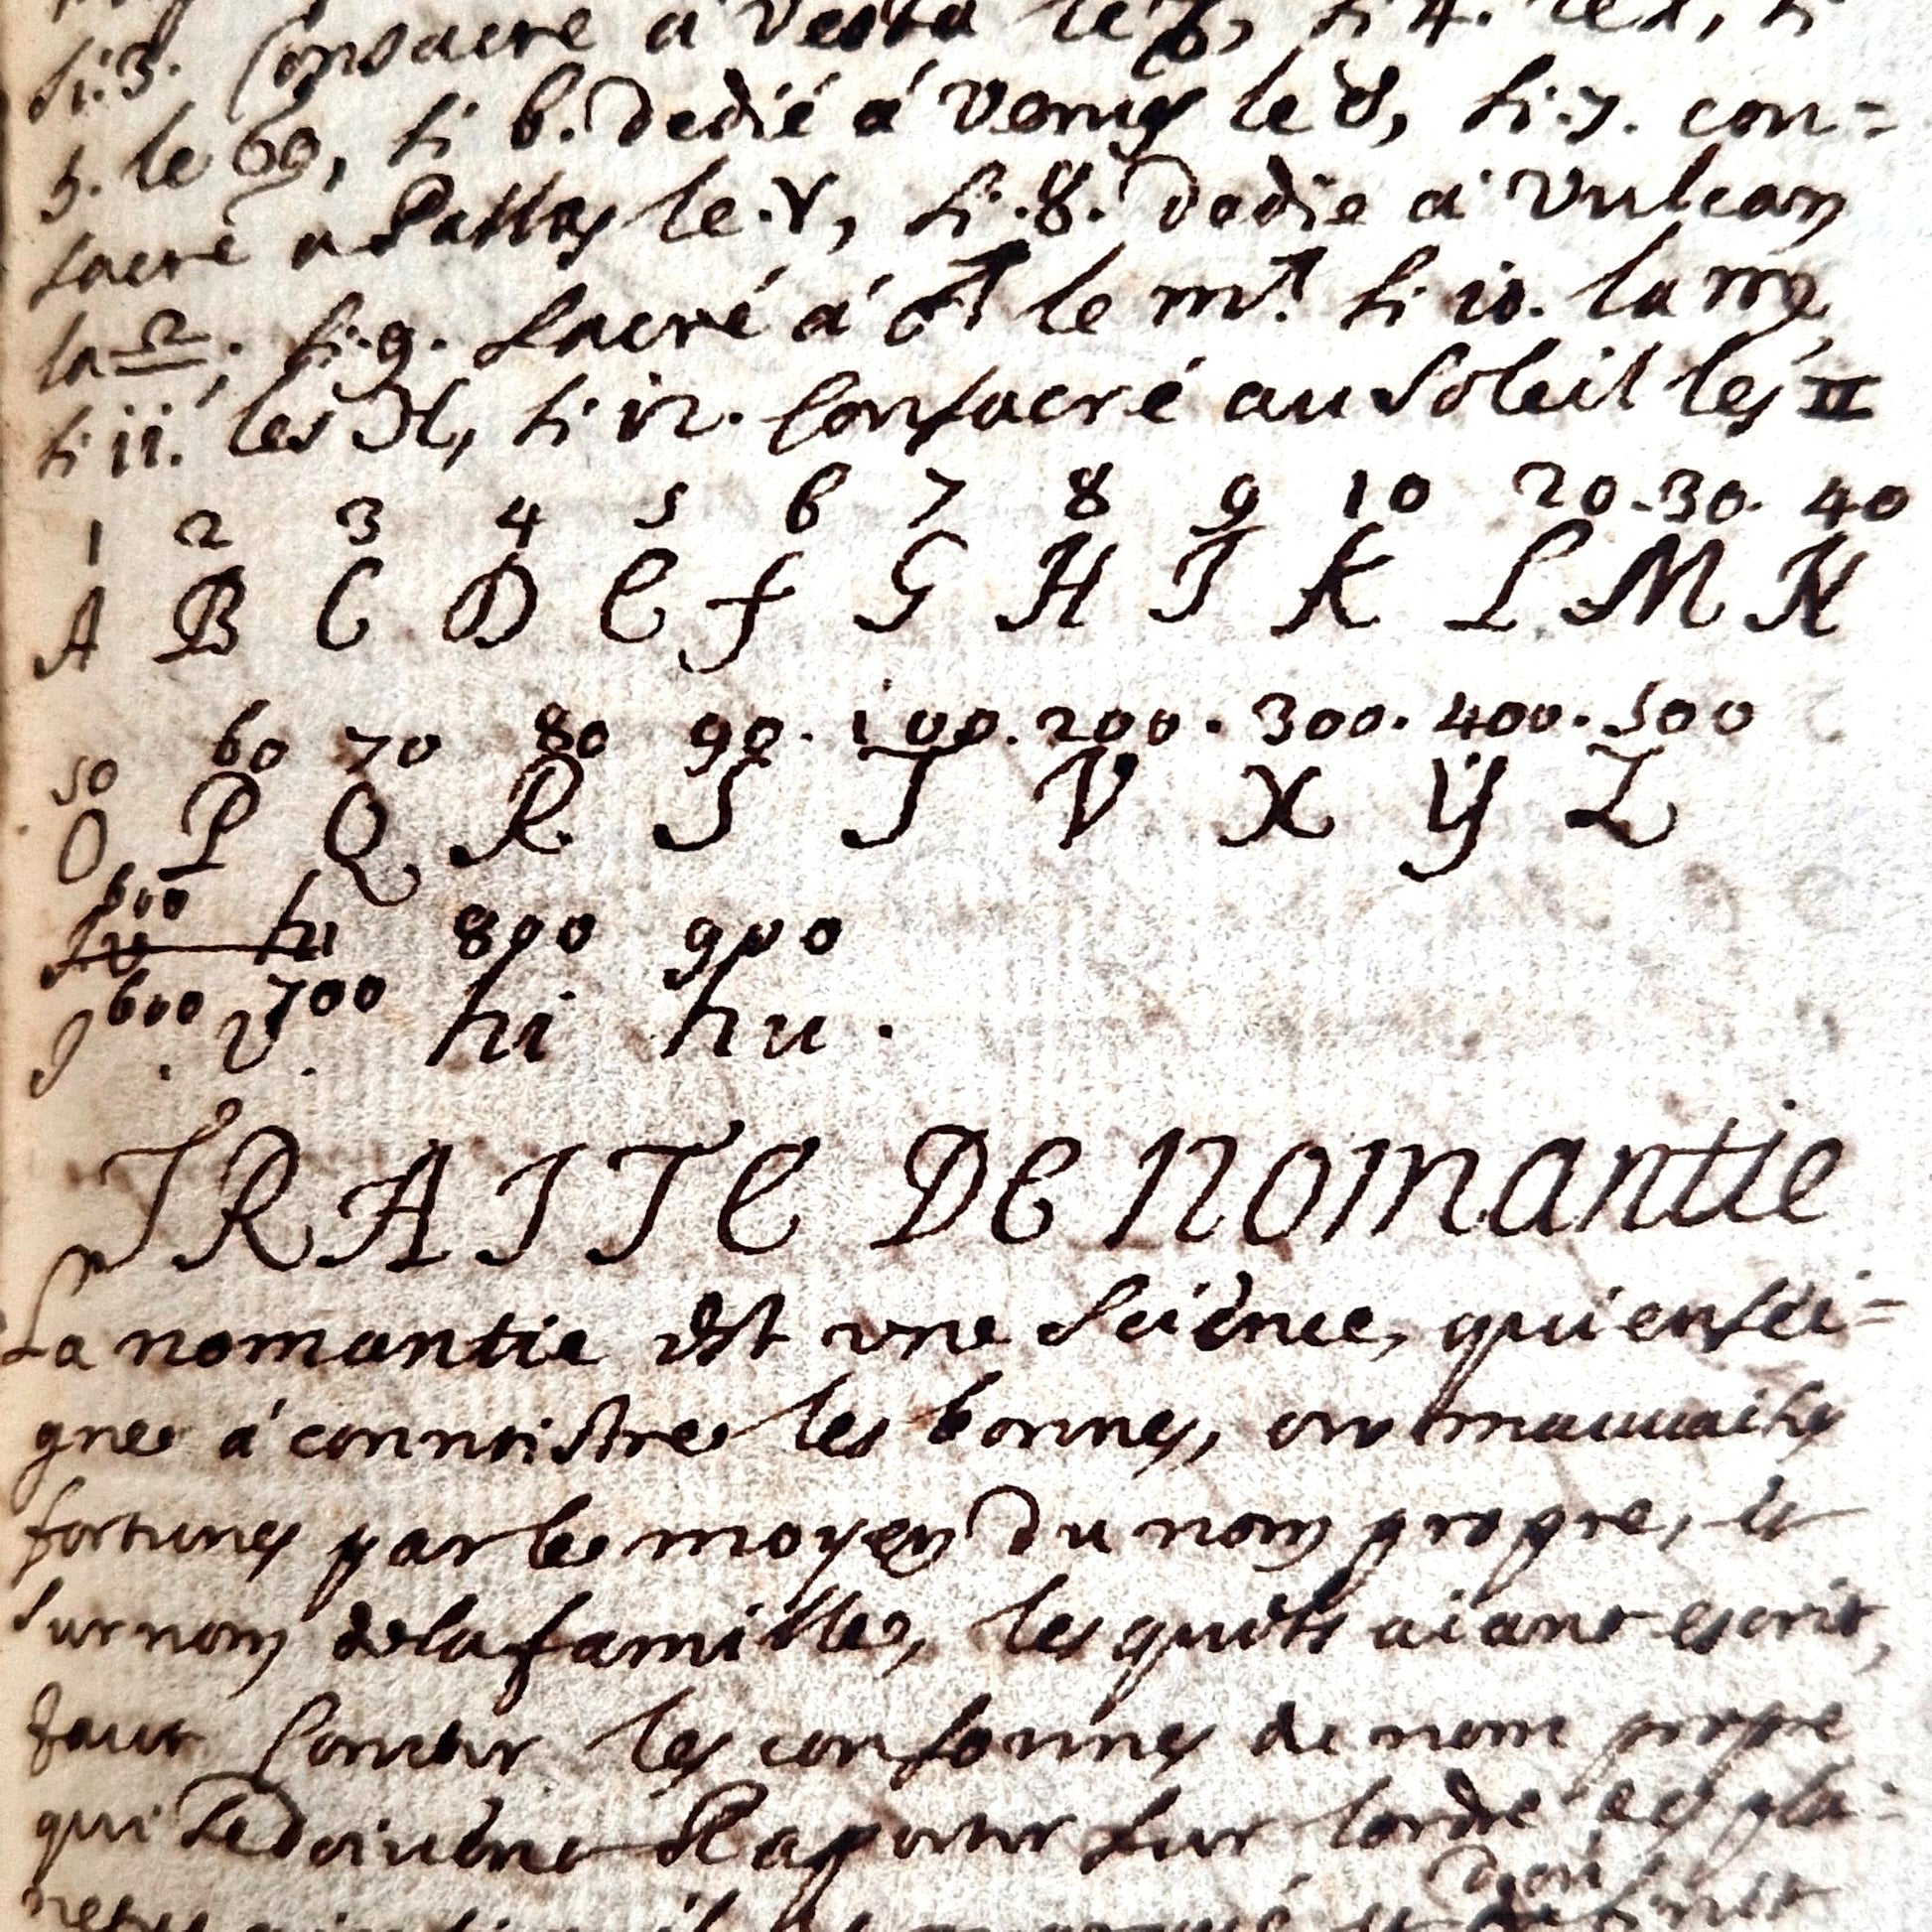 si.3. Consacré a Vesta le ♑, si 4. le ♐, si
5. le ♋, si 6. dedié á Venus le ♉, si.7. con=
sacré a Pallas le.♈, si.8. dedie a Vulcan
la ♎; si.9. sacré á ♂ le ♏. si 10. la ♍,
si ii. les ♓, si 12. Consacré au Soleil les ♊
1 2 3 4 5 6 7 8 9 10 20.30. 40
A B C D E f G H I K L M N
50 60 70 80 90. 100. 200. 300. 400. 500
O P Q R S T V X Y Z
600 800 900
hi
600 700
J . V. hi hu.
TRAITE DE NOmantie
La nomantie est vne Sciénce, qui ensei=
gne á connoistre les bonnes, ou mauuaises
fortunes par le moyen du nom propre, et
surnom de la famille, les quéls aiant escrit,
faut Conter les consonnes de nom propre
qui se doiuént Raporter sur lordre es pla=